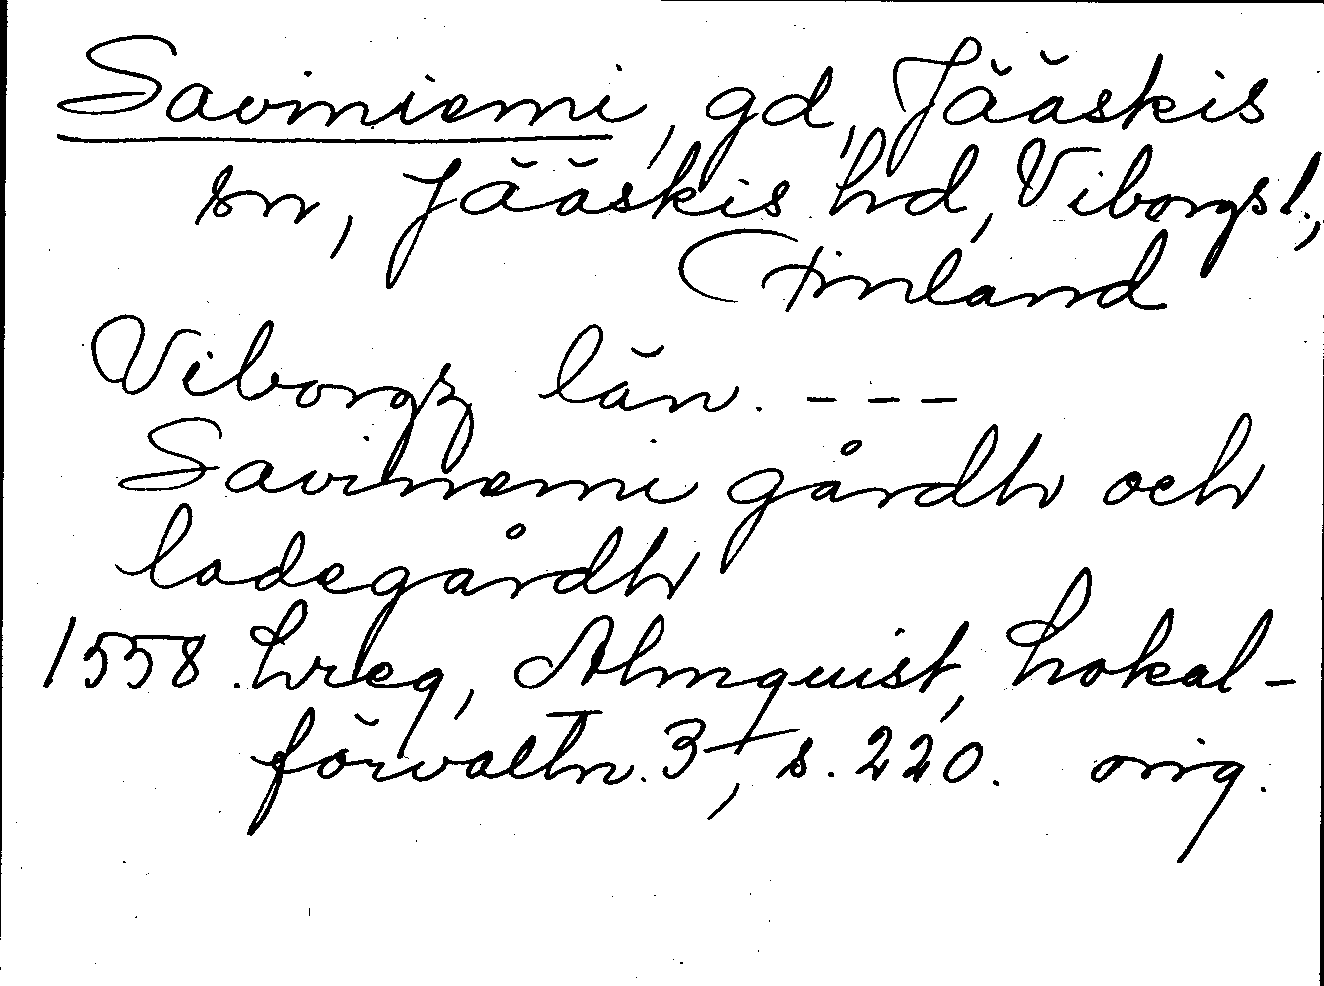 Saviniemi, gd, Jääskis
sn, Jääskis hd, Viborgs l.,
Finland
Viborgz län. - - -
Savinemi gårdh och
ladegårdh
1558. Lreg, Almquist, Lokal-
förvaltn. 3, s. 220. orig.